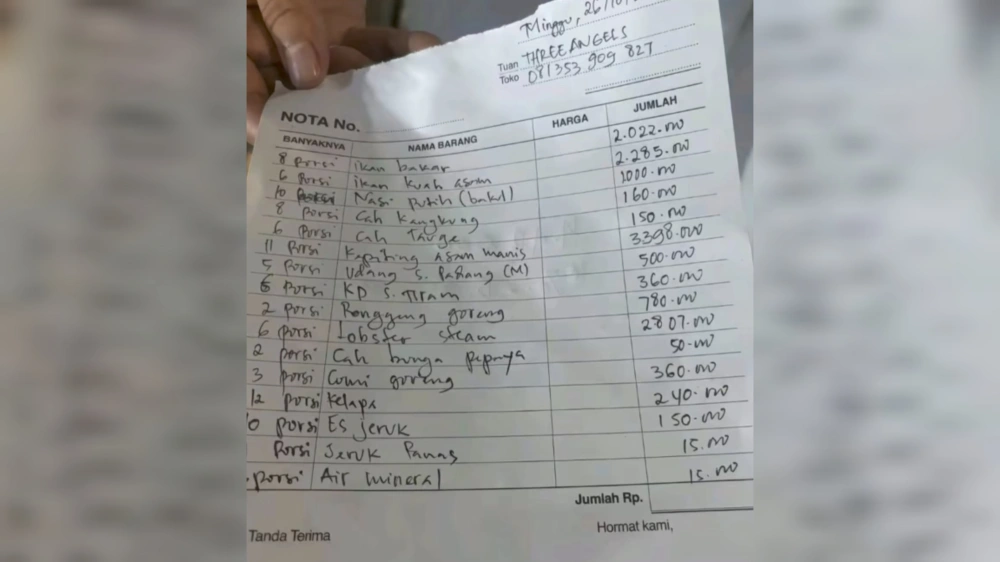 Minggu, 26/10/
Tuan THREE ANGELS
Toko 081353 909 827
NOTA No.
BANYAKNYA NAMA BARANG HARGA JUMLAH
8 porsi ikan bakar 2.022.000
6 porsi ikan kuah asam 2.285.000
10 Nasi putih (bakul) 1000.000
8 porsi Cah kangkung 160.000
6 porsi Cah Tauge 150.000
11 porsi Kepiting asam manis 3398.000
5 porsi Udang s. Padang (M) 500.000
porsi KP s. Tiram 360.000
2 porsi Ronggeng goreng 780.000
6 porsi lobster steam 2807.000
2 porsi Cah bunga pepaya 50.000
3 porsi Cumi goreng 360.000
12 porsi Kelapa 240.000
0 porsi Es jeruk 150.000
porsi Jeruk Panas 15.000
porsi Air mineral 15.000
Jumlah Rp.
Tanda Terima Hormat kami,